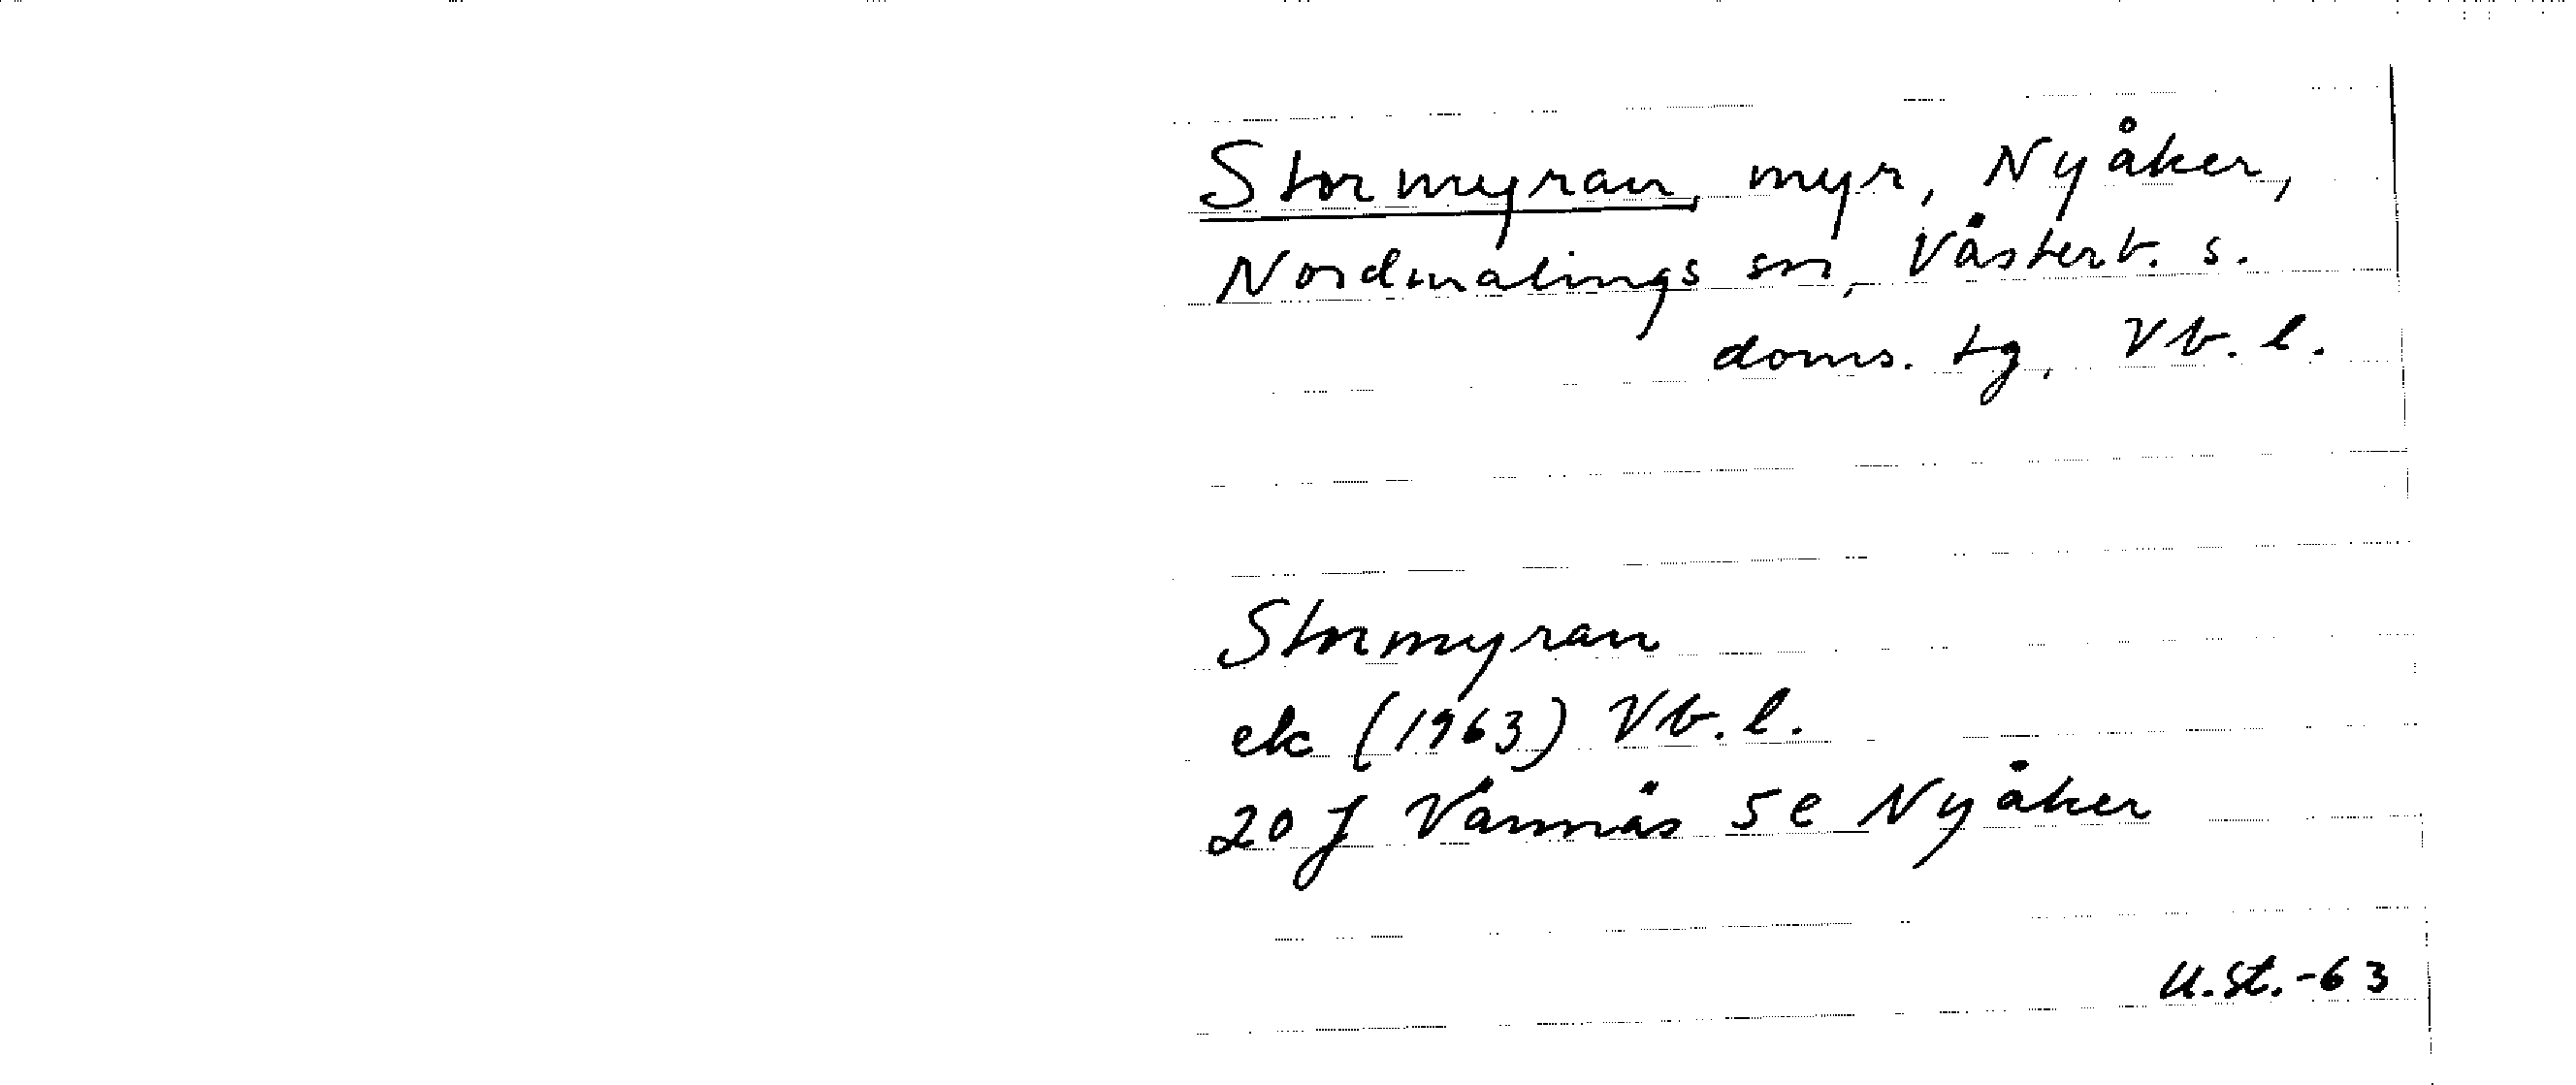 Stormyran, myr, Nyåker,
Nordmalings sn, Västerb. s.
doms. tg, Vb. l.
Stormyran
ek (1963) Vb. l.
20 J Vännäs 5 e Nyåker
U.St.-63